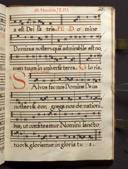 a est Dei
Dominus noster quā admirabile est no
men tuum in universa terra. Gloria.
Salvos fac nos Domine Deus
noster & con grega nos de nationi
bus, ut confiteamur Nomini sancto
tuo & gloriemur in gloria tu a.